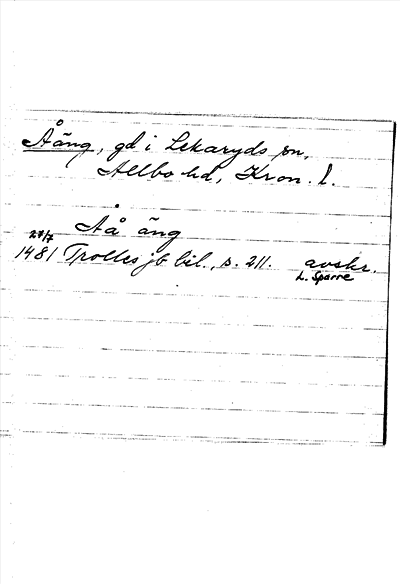 Åäng, gd i Lekaryds sn,
Allbo hd, Kron. l.
Aå äng
27/7
1481 Trolles jb bil., s. 211. avskr.
L. Sparre